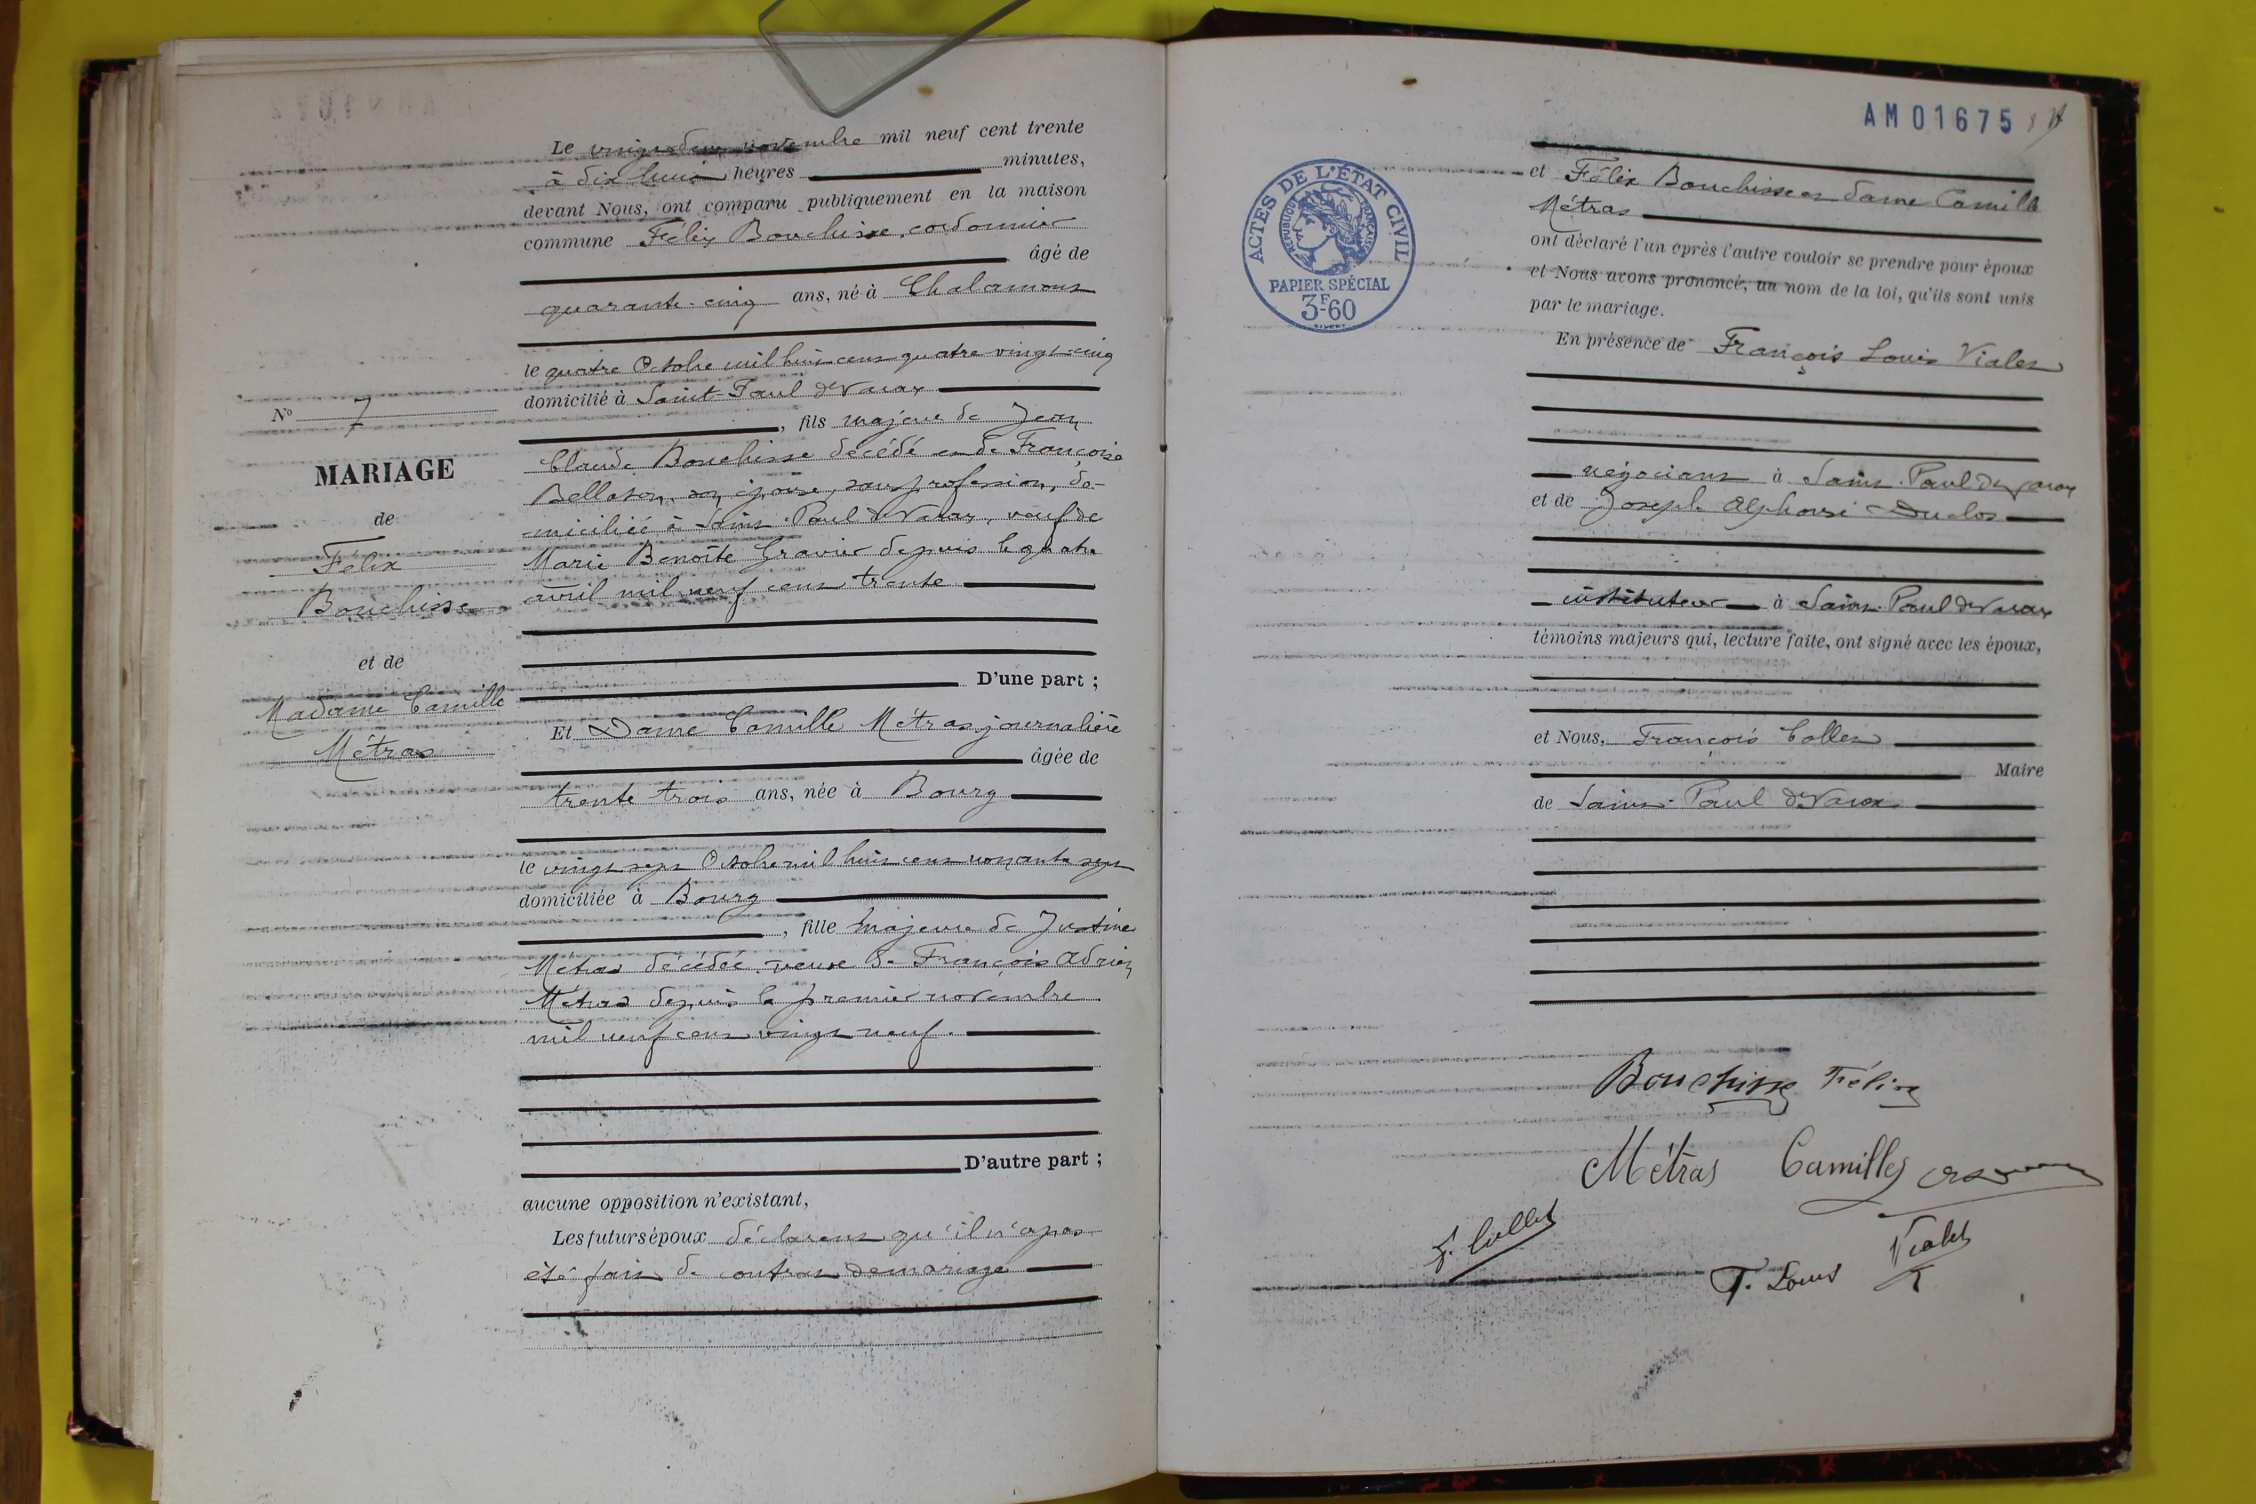 Le vingt deux novembre mil neuf cent trente
à dix huit heures minutes,
devant Nous, ont comparu publiquement en la maison
commune Félix Bouchisse, cordonnier
âgé de
quarante-cinq ans, né à Chalamont
le quatre Octobre mil huit cent quatre vingt-cinq
domicilié à Saint-Paul de Varax
, fils majeur de Jean
Claude Bouchisse décédé et de Françoise
Bellaton, son épouse, sans profession, do-
miciliée à Saint-Paul de Varax, veuf de
Marie Benoîte Gravier depuis le quatre
avril mil neuf cent trente
D'une part ;
Et Dame Camille Métras journalière
âgée de
trente trois ans, née à Bourg
le vingt sept Octobre mil huit cent nonante sept
domiciliée à Bourg
, fille majeure de Justine
Métras décédée, veuve de François Adrien
Métras depuis le premier novembre
mil neuf cent vingt neuf.
D'autre part ;
aucune opposition n'existant,
Les futurs époux déclarent qu'il n'a pas
été fait de contrat de mariage
N° 7
MARIAGE
de
Félix
Bouchisse
et de
Madame Camille
Métras
AM 01675
ACTES DE L'ÉTAT CIVIL
RÉPUBLIQUE FRANÇAISE
PAPIER SPÉCIAL
3F60
et Félix Bouchisse et dame Camille
Métras
ont déclaré l'un après l'autre vouloir se prendre pour époux
et Nous avons prononcé, au nom de la loi, qu'ils sont unis
par le mariage.
En présence de François Louis Vialet
négociant à Saint-Paul de Varax
et de Joseph Alphonse Duclos
instituteur à Saint-Paul de Varax
témoins majeurs qui, lecture faite, ont signé avec les époux,
et Nous, François Collet
Maire
de Saint-Paul de Varax
Bouchisse Félix
Métras Camille
F. Collet
F. Louis Vialet